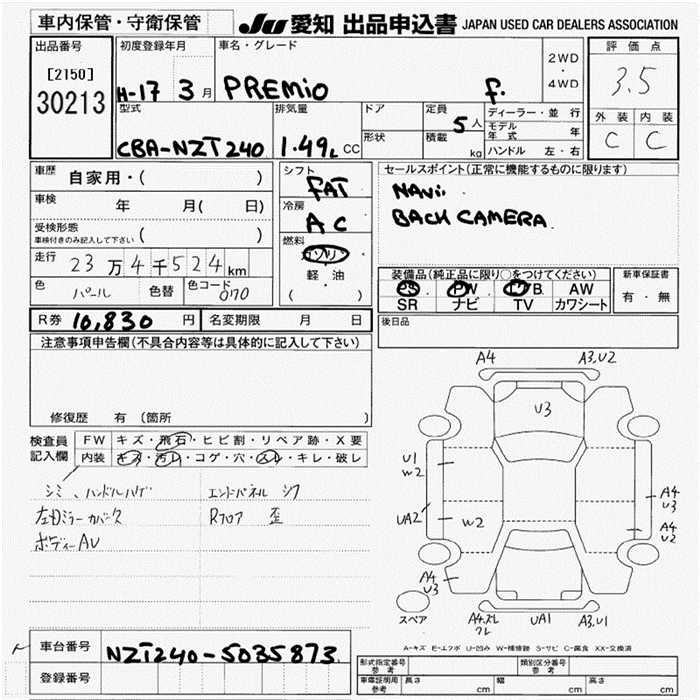 車内保管・守衛保管
JU 愛知 出品申込書 JAPAN USED CAR DEALERS ASSOCIATION
出品番号
[2150]
30213
初度登録年月
H-17 3月
車名・グレード
PREMIO
F.
2WD
・
4WD
評価点
3.5
外装 内装
C C
型式
CBA-NZT240
排気量
1.49L CC
ドア
形状
定員
5人
積載
kg
ディーラー・並行
モデル年式 年
ハンドル 左・右
車歴 自家用・( )
車検 年 月( 日)
受検形態
車検付きのみ記入して下さい ( )
走行 23万4千524km
色 パール 色替 色コード 070
シフト
FAT
冷房
AC
燃料
ガソリン
軽・油
( )
セールスポイント(正常に機能するものに限ります)
NAVi.
BACK CAMERA.
装備品(純正品に限り○をつけてください)
PS PW AW
SR ナビ TV カワシート
新車保証書
有・無
後日品
R券 10,830 円 名変期限 月 日
注意事項申告欄(不具合内容等は具体的に記入して下さい)
修復歴 有(箇所 )
検査員記入欄
FW キズ・飛石・ヒビ割・リペア跡・X要
内装 キズ・汚レ・コゲ・穴・スレ・キレ・破レ
シミ、ハンドルハゲ
エンドパネル シワ
Rフロア 歪
ボディーAU
A4
A3,U2
U3
U1
W2
UA2
W2
A4
U3
A4
U2
A4
U3
スペア
A4.スレ
ワレ
UA1
A3,U1
A-キズ E-エクボ U-凹み W-補修跡 S-サビ C-腐食 XX-交換済
車台番号 NZT240-5035873.
登録番号
形式指定番号
参考
類別区分番号
参考
車庫証明用
参考
長さ cm 幅 cm 高さ cm